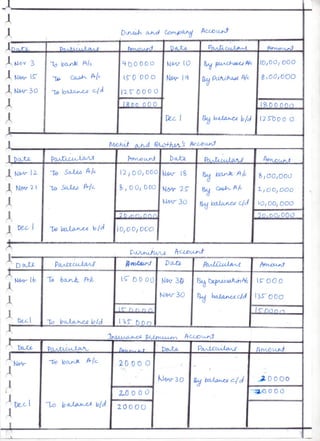 Dinesh and Company Account
Date Particulars Amount Date Particulars Amount
Nov 3 To bank A/c 400000 Nov 10 By purchases A/c 10,00,000
Nov 15 To Cash A/c 150 000 Nov 19 By Purchase A/c 8,00,000
Nov 30 To balance c/d 1250000
1800 000 1800000
Dec 1 By balance b/d 125000 0
Mohit and Brother's Account
Date Particulars Amount Date Particulars Amount
Nov 12 To Sales A/c 12,00,000 Nov 18 By bank A/c 8,00,000
Nov 21 To Sales A/c 8,00,000 Nov 25 By Cash A/c 2,00,000
Nov 30 By balance c/d 10,00,000
20,00,000 20,00,000
Dec 1 To balance b/d 10,00,000
Furniture Account
Date Particulars Amount Date Particulars Amount
Nov 16 To bank A/c 15 0000 Nov 30 By Depreciation A/c 15 000
Nov 30 By balance c/d 135 000
150000 150000
Dec 1 To balance b/d 135 000
Insurance Premium Account
Date Particulars Amount Date Particulars Amount
Nov To bank A/c 20000
Nov 30 By balance c/d 20000
20000 20000
Dec 1 To balance b/d 20000